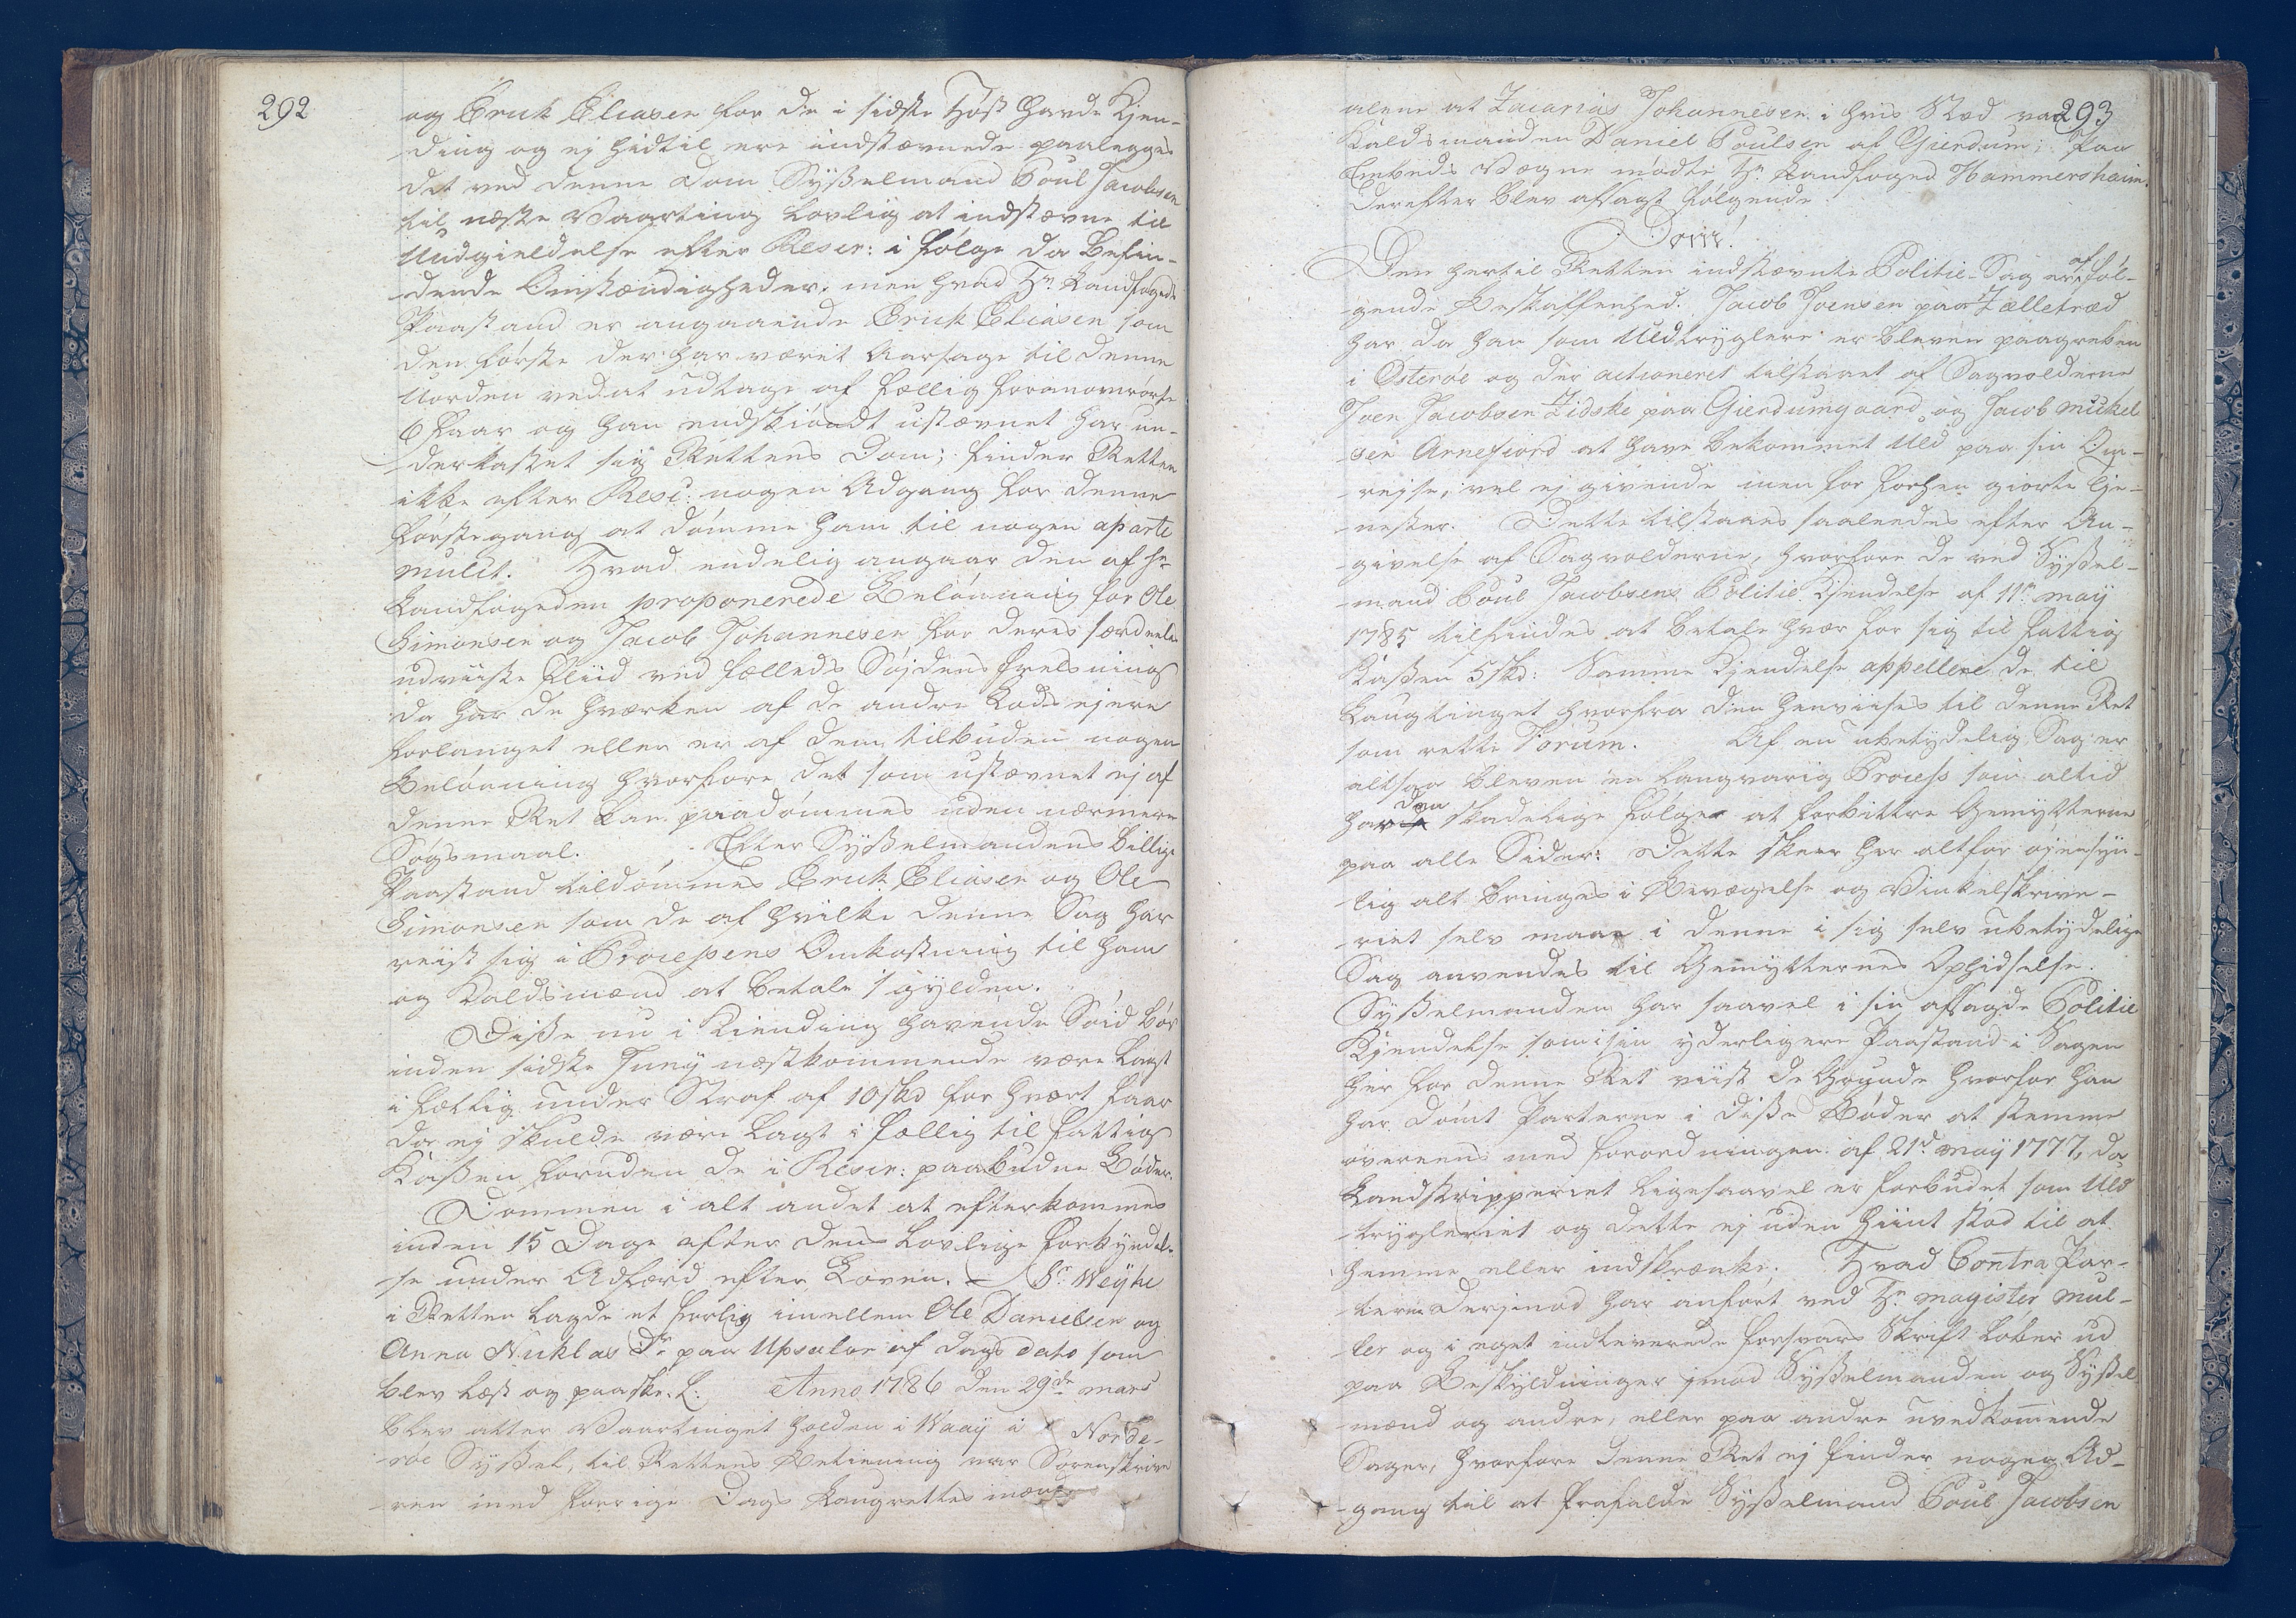 292
og Erick Eliasen for de i sidste Høst havde Kjen-
ding og ej hidtil ere indstævnede paalegges
det ved denne Dom Sysselmand Poul Jacobsen
til næste Vaarting lovlig at indstævne til
Undgieldelse efter Rescr: i følge da befin-
dende Omstændigheder. men hvad Hr. Landfogeds
Paastand er angaaende Erick Eliasen som
den første der har været Aarsage til denne
Uorden ved at udtage af fællig foranomrørte
6 Faar og han endskiøndt ustævnet har un-
derkastet sig Rettens Dom; finder Retten
ikke efter Rescr: nogen Adgang for denne
første gang at dømme ham til nogen aparte
mulct. Hvad endelig angaar den af Hr.
Landfogeden proponerede Belønning for Ole
Simonsen og Jacob Johannesen for deres særdeeles
udviiste Fliid ved fælleds Søjdens
da har de hverken af de andre Lodsejere
forlanget eller er af dem tilbuden nogen
Belønning hvorfore det som ustævnet ej af
denne Ret kan paadømmes uden nærmere
Søgsmaal. Efter Sysselmandens billige
Paastand tildømmes Erick Eliasen og Ole
Simonsen som de af hvilke denne Sag har
reist sig i Processens Omkostning til ham
og Kaldsmænd at betale 1 gylden.
Disse nu i Kiending havende Søid bør
inden sidste Juny næstkommende være lagt
i fællig under Straf af 10 skd for hvert Faar
der ej skulde være lagt i fællig til fattig
Kassen foruden de i Rescr: paabudne Bøder.
Dommen i alt andet at efterkommes
inden 15 Dage efter dens lovlige Forkyndel-
se under Adfærd efter Loven. Sr. Weyhe
i Retten lagde et forlig imellem Ole Danielsen og
Anna Nicklas Dr. paa Upsalor af dags dato som
blev læst og paaskr. L: Anno 1786 den 29de mars
blev atter Vaartinget holden i Waaij i Norde-
røe Syssel, til Rettens Betiening var Sorenskrive
ren med forrige Dags Laugrettes mænd
293
alene at Zacarias Johannesen i hvis Sted var
Kaldsmanden Daniel Poulsen af Gierdum; Paa
Embeds Vegne mødte Hr. Landfoged Hammershaim.
Derefter blev afsagt følgende
Dom!
Den hertil Retten indstævnte Politie-Sag er af føl-
gende Beskaffenhed. Jacob Joensen paa Zælletræd
har da han som Uldtryglere er bleven paagreben
i Østerøe og der actioneret tilstaaet af Sagvolderne
Joen Jacobsen Zidske paa Gierdumgaard og Jacob Mickel
sen Arnefiord at have bekommet Uld paa sin Om-
rejse, vel ej givende men for forhen giorte Tje-
nester. Dette tilstaaes saaleedes efter An-
givelse af Sagvolderne, hvorfore de ved Syssel-
mand Poul Jacobsens Politie Kjendelse af 11te maij
1785 tilfindes at betale hver for sig til fattig
Kassen 5 skd: Samme Kjendelse appellere de til
Laugtinget hvorfra den henviises til denne Ret
som rette Forum. Af en ubetydelig Sag er
altsaa bleven en langvarig Process som altid
har den skadelige Følge at forbittre Gemytterne
paa alle Sider: Dette skeer her altfor øjensyn-
lig alt bringes i Bevægelse og Vinkelskrive-
riet selv maae i denne i sig selv ubetydelige
Sag anvendes til Gemytternes Ophidselse.
Sysselmanden har saavel i sin afsagde Politie
Kjendelse som i sin yderligere Paastand i Sagen
her for denne Ret viist de Grunde hvorfor han
har dømt Parterne i disse Bøder at stemme
overeens med Forordningen af 21d maij 1777, da
Landstripperiet ligesaavel er forbudet som Uld
trygleriet og dette ej uden hiint stod til at
hemme eller indskrænke. Hvad Contra Par-
terne derimod har anført ved Hr. magister Mul-
ler og i eget indleverede forsvars Skrift løber ud
paa Beskyldninger imod Sysselmanden og Syssel
mænd og andre, eller paa andre uvedkommende
Sager, hvorfore denne Ret ej finder nogen Ad-
gang til at frafalde Sysselmand Poul Jacobsen